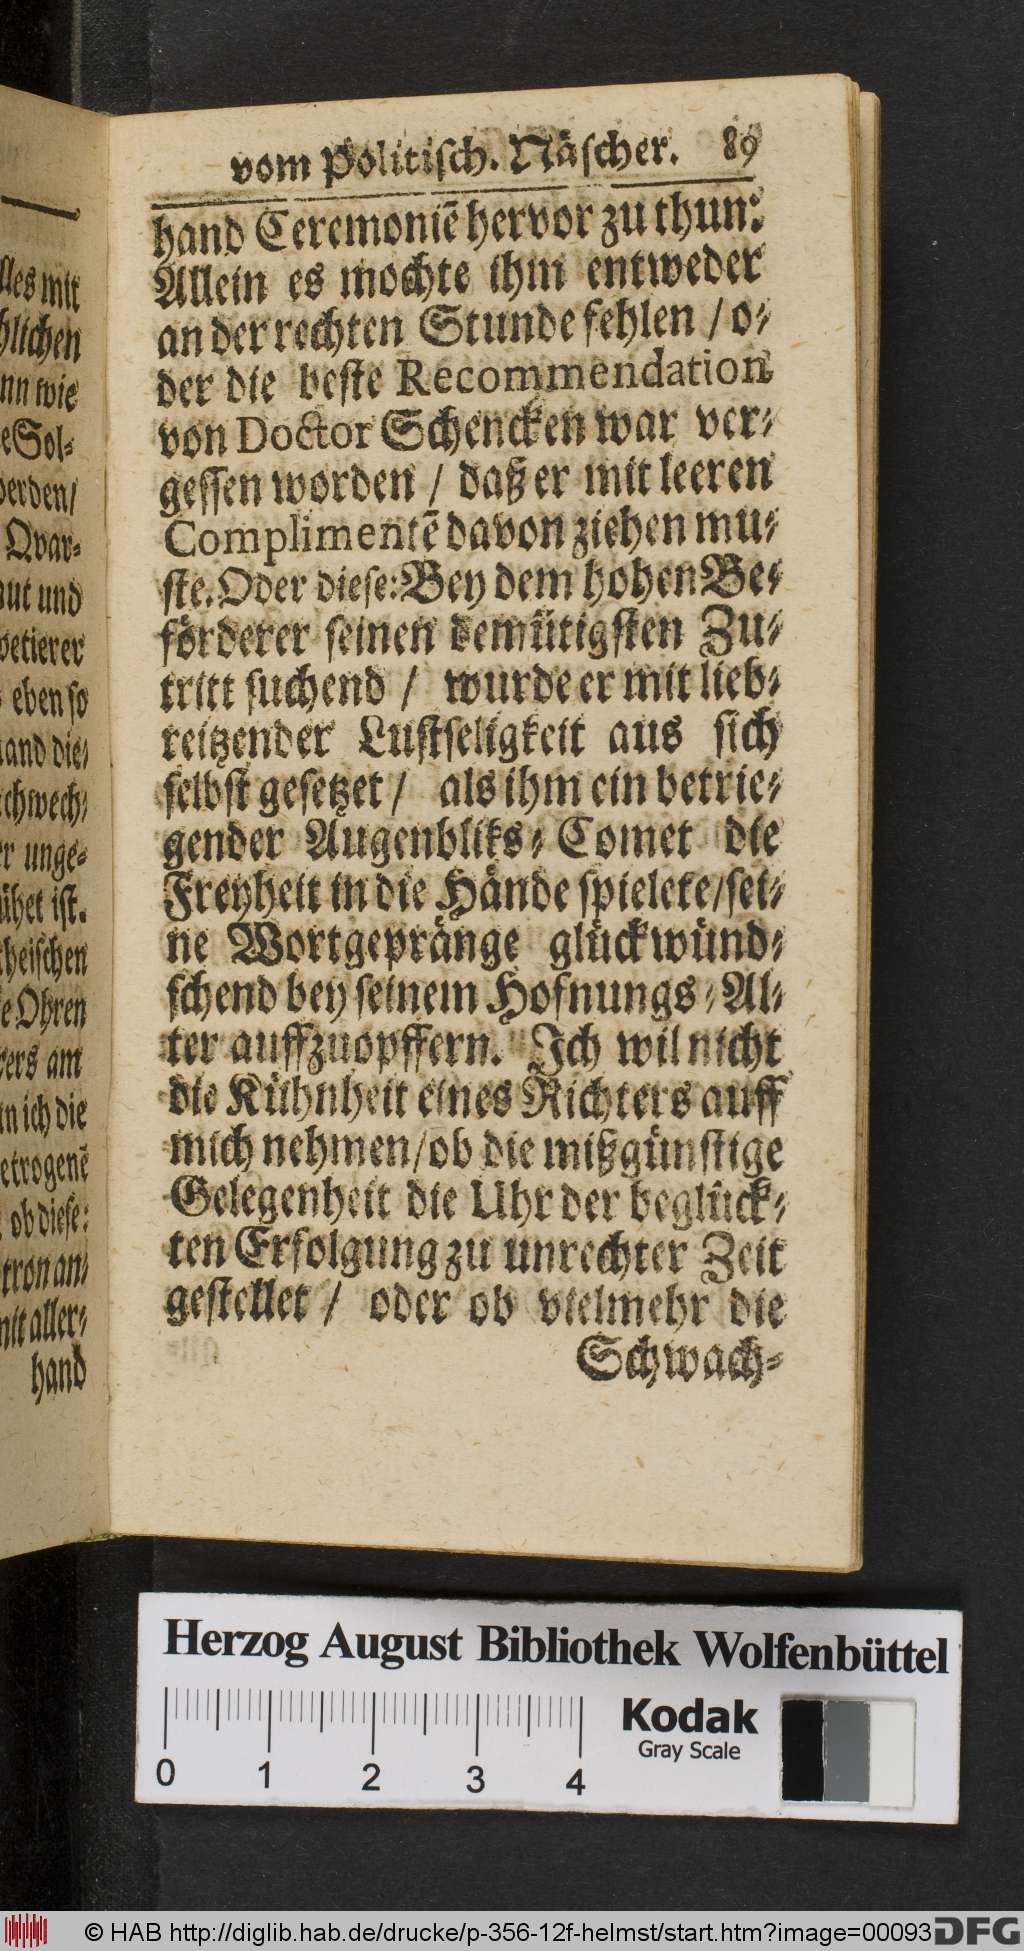 lles mit
hlichen
nn wie
e Sol-
erden/
Qvar-
aut und
petierer
eben so
and die-
chwech-
r unge-
ühet ist.
heischen
e Ohren
ers am
n ich die
etrogenē
ob diese:
tron an-
nit aller-
hand
vom Politisch. Näscher. 89
hand Ceremoniē hervor zu thun:
Allein es mochte ihm entweder
an der rechten Stunde fehlen / o-
der die beste Recommendation
von Doctor Schencken war ver-
gessen worden / daß er mit leeren
Complimentē davon ziehen mu-
ste. Oder diese: Bey dem hohen Be-
förderer seinen demütigsten Zu-
tritt suchend / wurde er mit lieb-
reitzender Lustseligkeit aus sich
selbst gesetzet / als ihm ein betrie-
gender Augenbliks-Comet die
Freyheit in die Hände spielete/sei-
ne Wortgepränge glückwünd-
schend bey seinem Hofnungs-Al-
ter auffzuopffern. Ich wil nicht
die Kühnheit eines Richters auff
mich nehmen/ob die mißgünstige
Gelegenheit die Uhr der beglück-
ten Erfolgung zu unrechter Zeit
gestellet / oder ob vielmehr die
Schwach-
Herzog August Bibliothek Wolfenbüttel
Kodak
Gray Scale
0 1 2 3 4
© HAB http://diglib.hab.de/drucke/p-356-12f-helmst/start.htm?image=00093
DFG